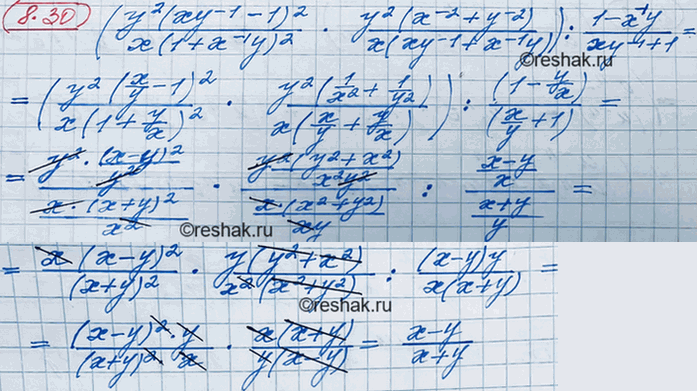 8.30 ( y²(xy⁻¹-1)² / x(1+x⁻¹y)² · y²(x⁻²+y⁻²) / x(xy⁻¹+x⁻¹y) ) : 1-x⁻¹y / xy⁻¹+1 =
= ( y²(x/y-1)² / x(1+y/x)² · y²(1/x²+1/y²) / x(x/y+y/x) ) : (1-y/x) / (x/y+1) =
= (y²·(x-y)²/y²) / (x·(x+y)²/x²) · (y²(y²+x²)/x²y²) / (x·(x²+y²)/xy) : ((x-y)/x) / ((x+y)/y) =
©reshak.ru
©reshak.ru
= x(x-y)² / (x+y)² · y(y²+x²) / x²(x²+y²) : (x-y)y / x(x+y) =
©reshak.ru
= (x-y)²·y / (x+y)²·x · x(x+y) / y(x-y) = x-y / x+y